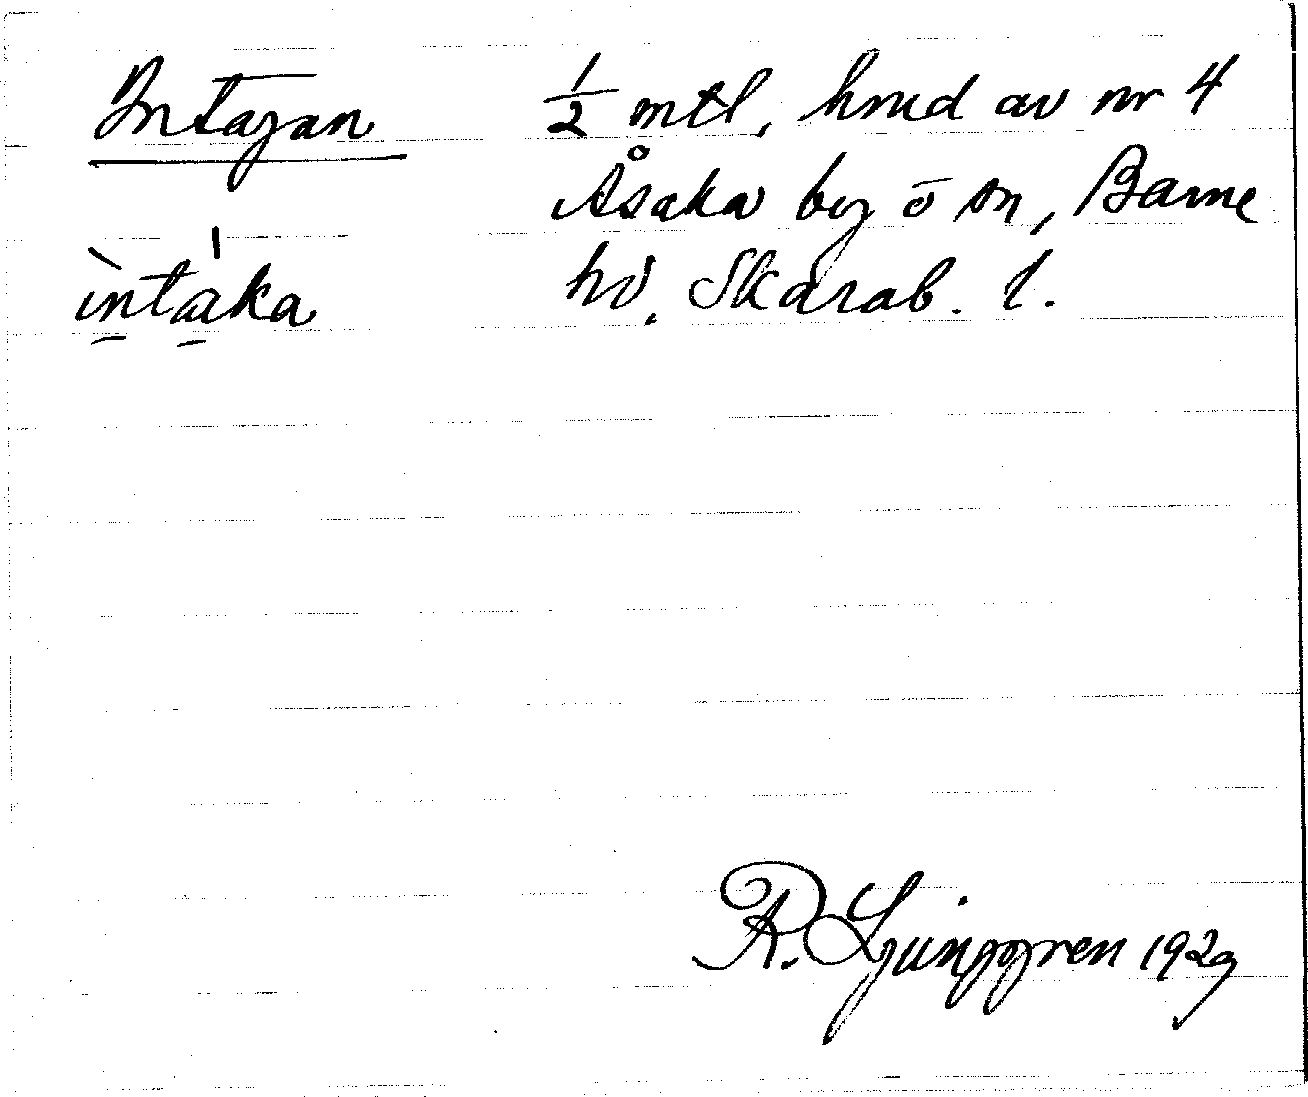 Intagan ½ mtl, hmd av nr 4
Åsaka by o sn, Barne
ìntàka hd. Skarab. l.
R. Ljunggren 1929